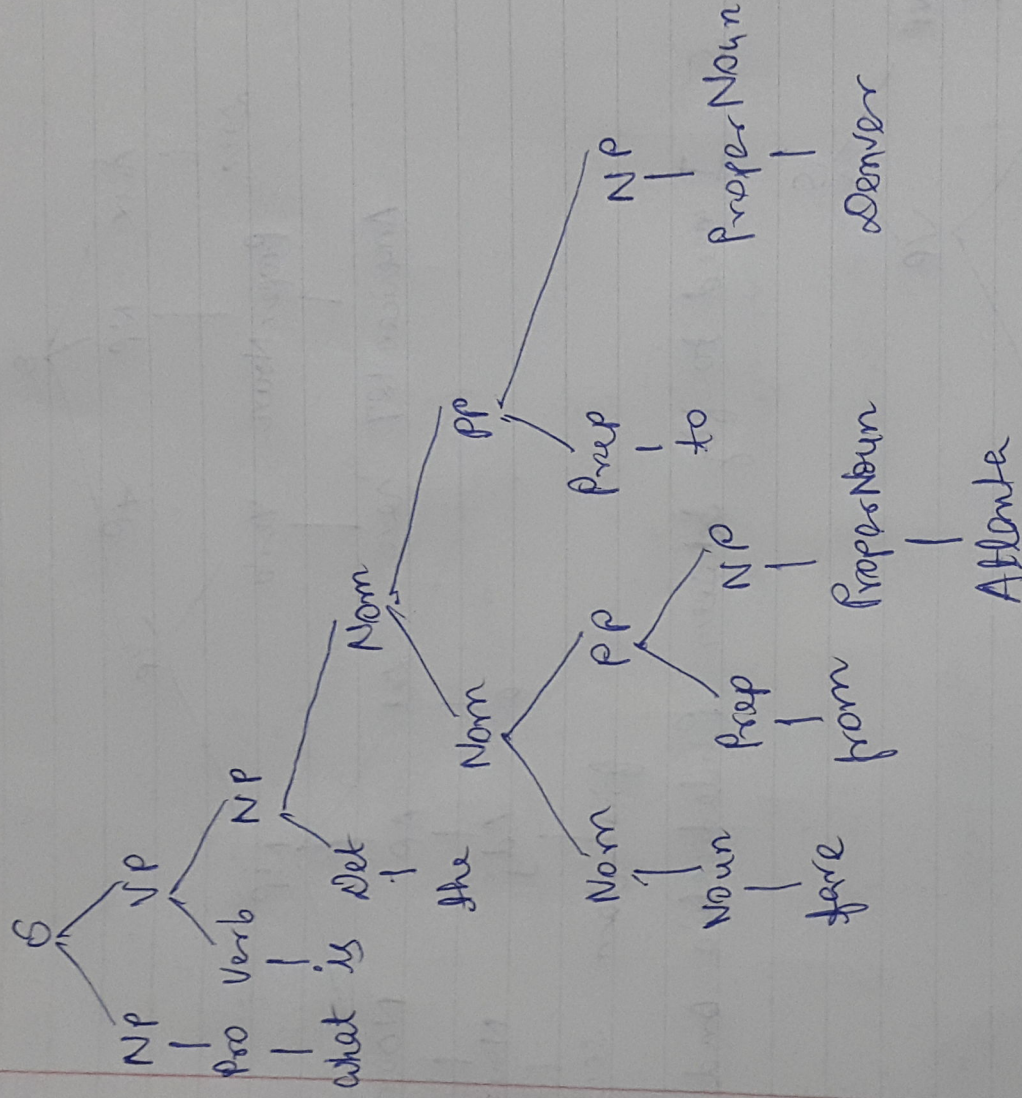 S
NP VP
Pro Verb NP
what is Det Nom
the Nom PP
Nom PP Prep NP
Noun Prep NP to ProperNoun
fare from ProperNoun Denver
Atlanta